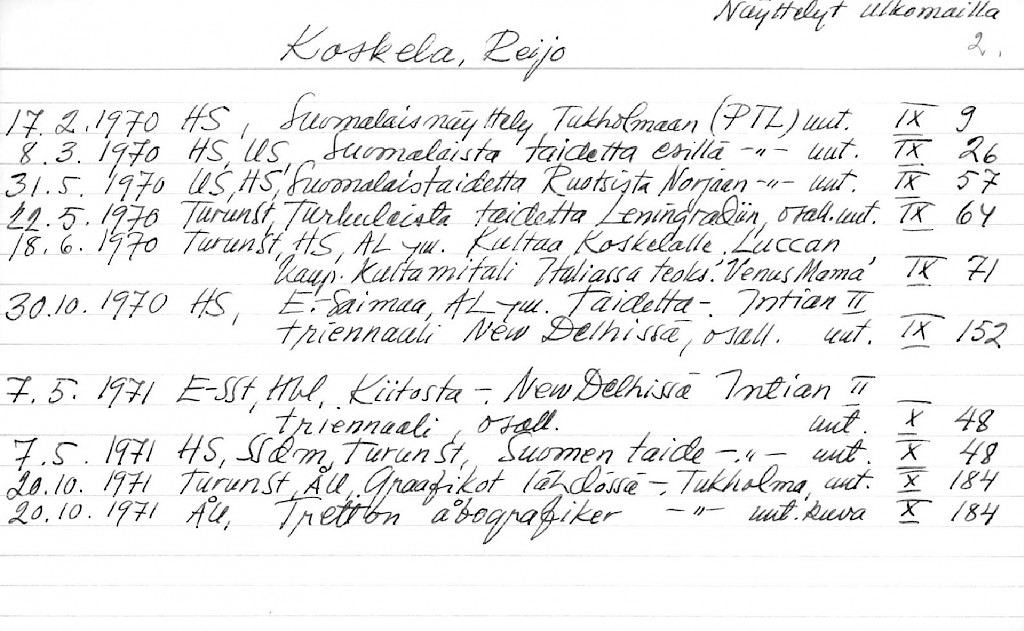 Näyttelyt ulkomailla
2.
Koskela, Reijo
17.2.1970 HS, Suomalaisnäyttely Tukholmaan (PTL) uut. IX 9
8.3.1970 HS, US, Suomalaista taidetta esillä -"- uut. IX 26
31.5.1970 US, HS, Suomalaistaidetta Ruotsista Norjaan -"- uut. IX 57
22.5.1970 TurunSt, Turkulaista taidetta Leningradiin, osall. uut. IX 64
18.6.1970 TurunSt, HS, AL ym. Kultaa Koskelalle. Luccan
kaup. kultamitali Italiassa teoks. 'Venus Mama' IX 71
30.10.1970 HS, E-Saimaa, AL ym. Taidetta - Intian II
triennaali New Delhissä, osall. uut. IX 152
7.5.1971 E-SSt, Hbl, Kiitosta - New Delhissä Intian II
triennaali, osall. uut. X 48
7.5.1971 HS, SSdm, TurunSt, Suomen taide -"- uut. X 48
20.10.1971 TurunSt, ÅU, Graafikot lähdössä - Tukholma, uut. X 184
20.10.1971 ÅU, Tretton åbografiker -"- uut. kuva X 184